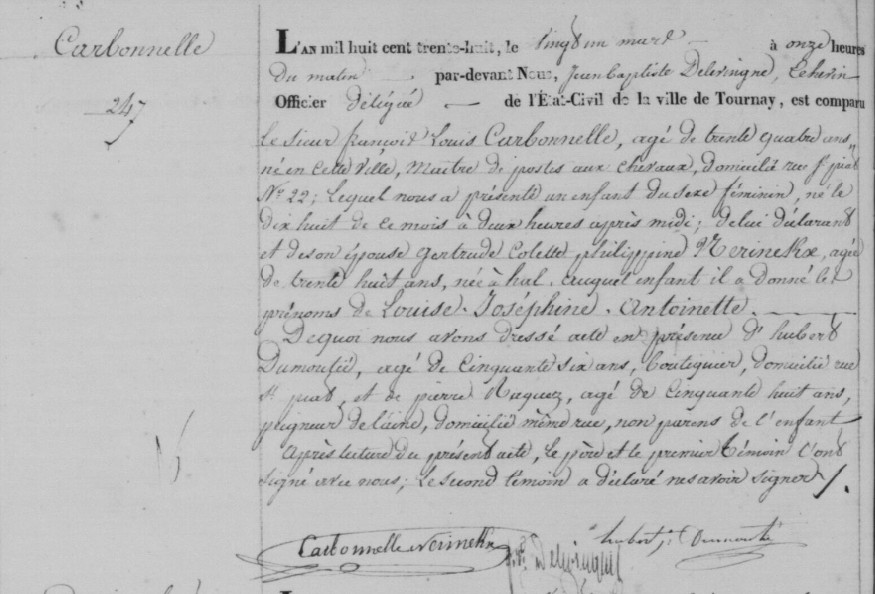 Carbonnelle
247
L'AN mil huit cent trente-huit, le vingt un mars à onze heures
du matin par-devant Nous, Jean baptiste Delevingne, Echevin
Officier délégué de l'État-Civil de la ville de Tournay, est comparu
le sieur françois Louis Carbonnelle, agé de trente quatre ans,
né en cette ville, Maître de postes aux chevaux, domicilié rue St piat
No 22; Lequel nous a présenté un enfant du sexe féminin, né le
dix huit de ce mois à deux heures après midi; de lui déclarant
et de son épouse Gertrude Colette philippine Nerinckx, agée
de trente huit ans, née à hal. auquel enfant il a donné les
prénoms de Louise. Joséphine. Antoinette.
De quoi nous avons dressé acte en présence d'hubert
Dumoutié, agé de Cinquante six ans, boutiquier, domicilié rue
St piat, et de pierre Raquez, agé de Cinquante huit ans,
peigneur de laine, domicilié même rue, non parens de l'enfant
Après lecture du présent acte, Le père et le premier témoin l'ont
signé avec nous; Le second témoin a déclaré ne savoir signer /.
Carbonnelle Nerinckx
hubert j: Dumoutié
Delevingne
L